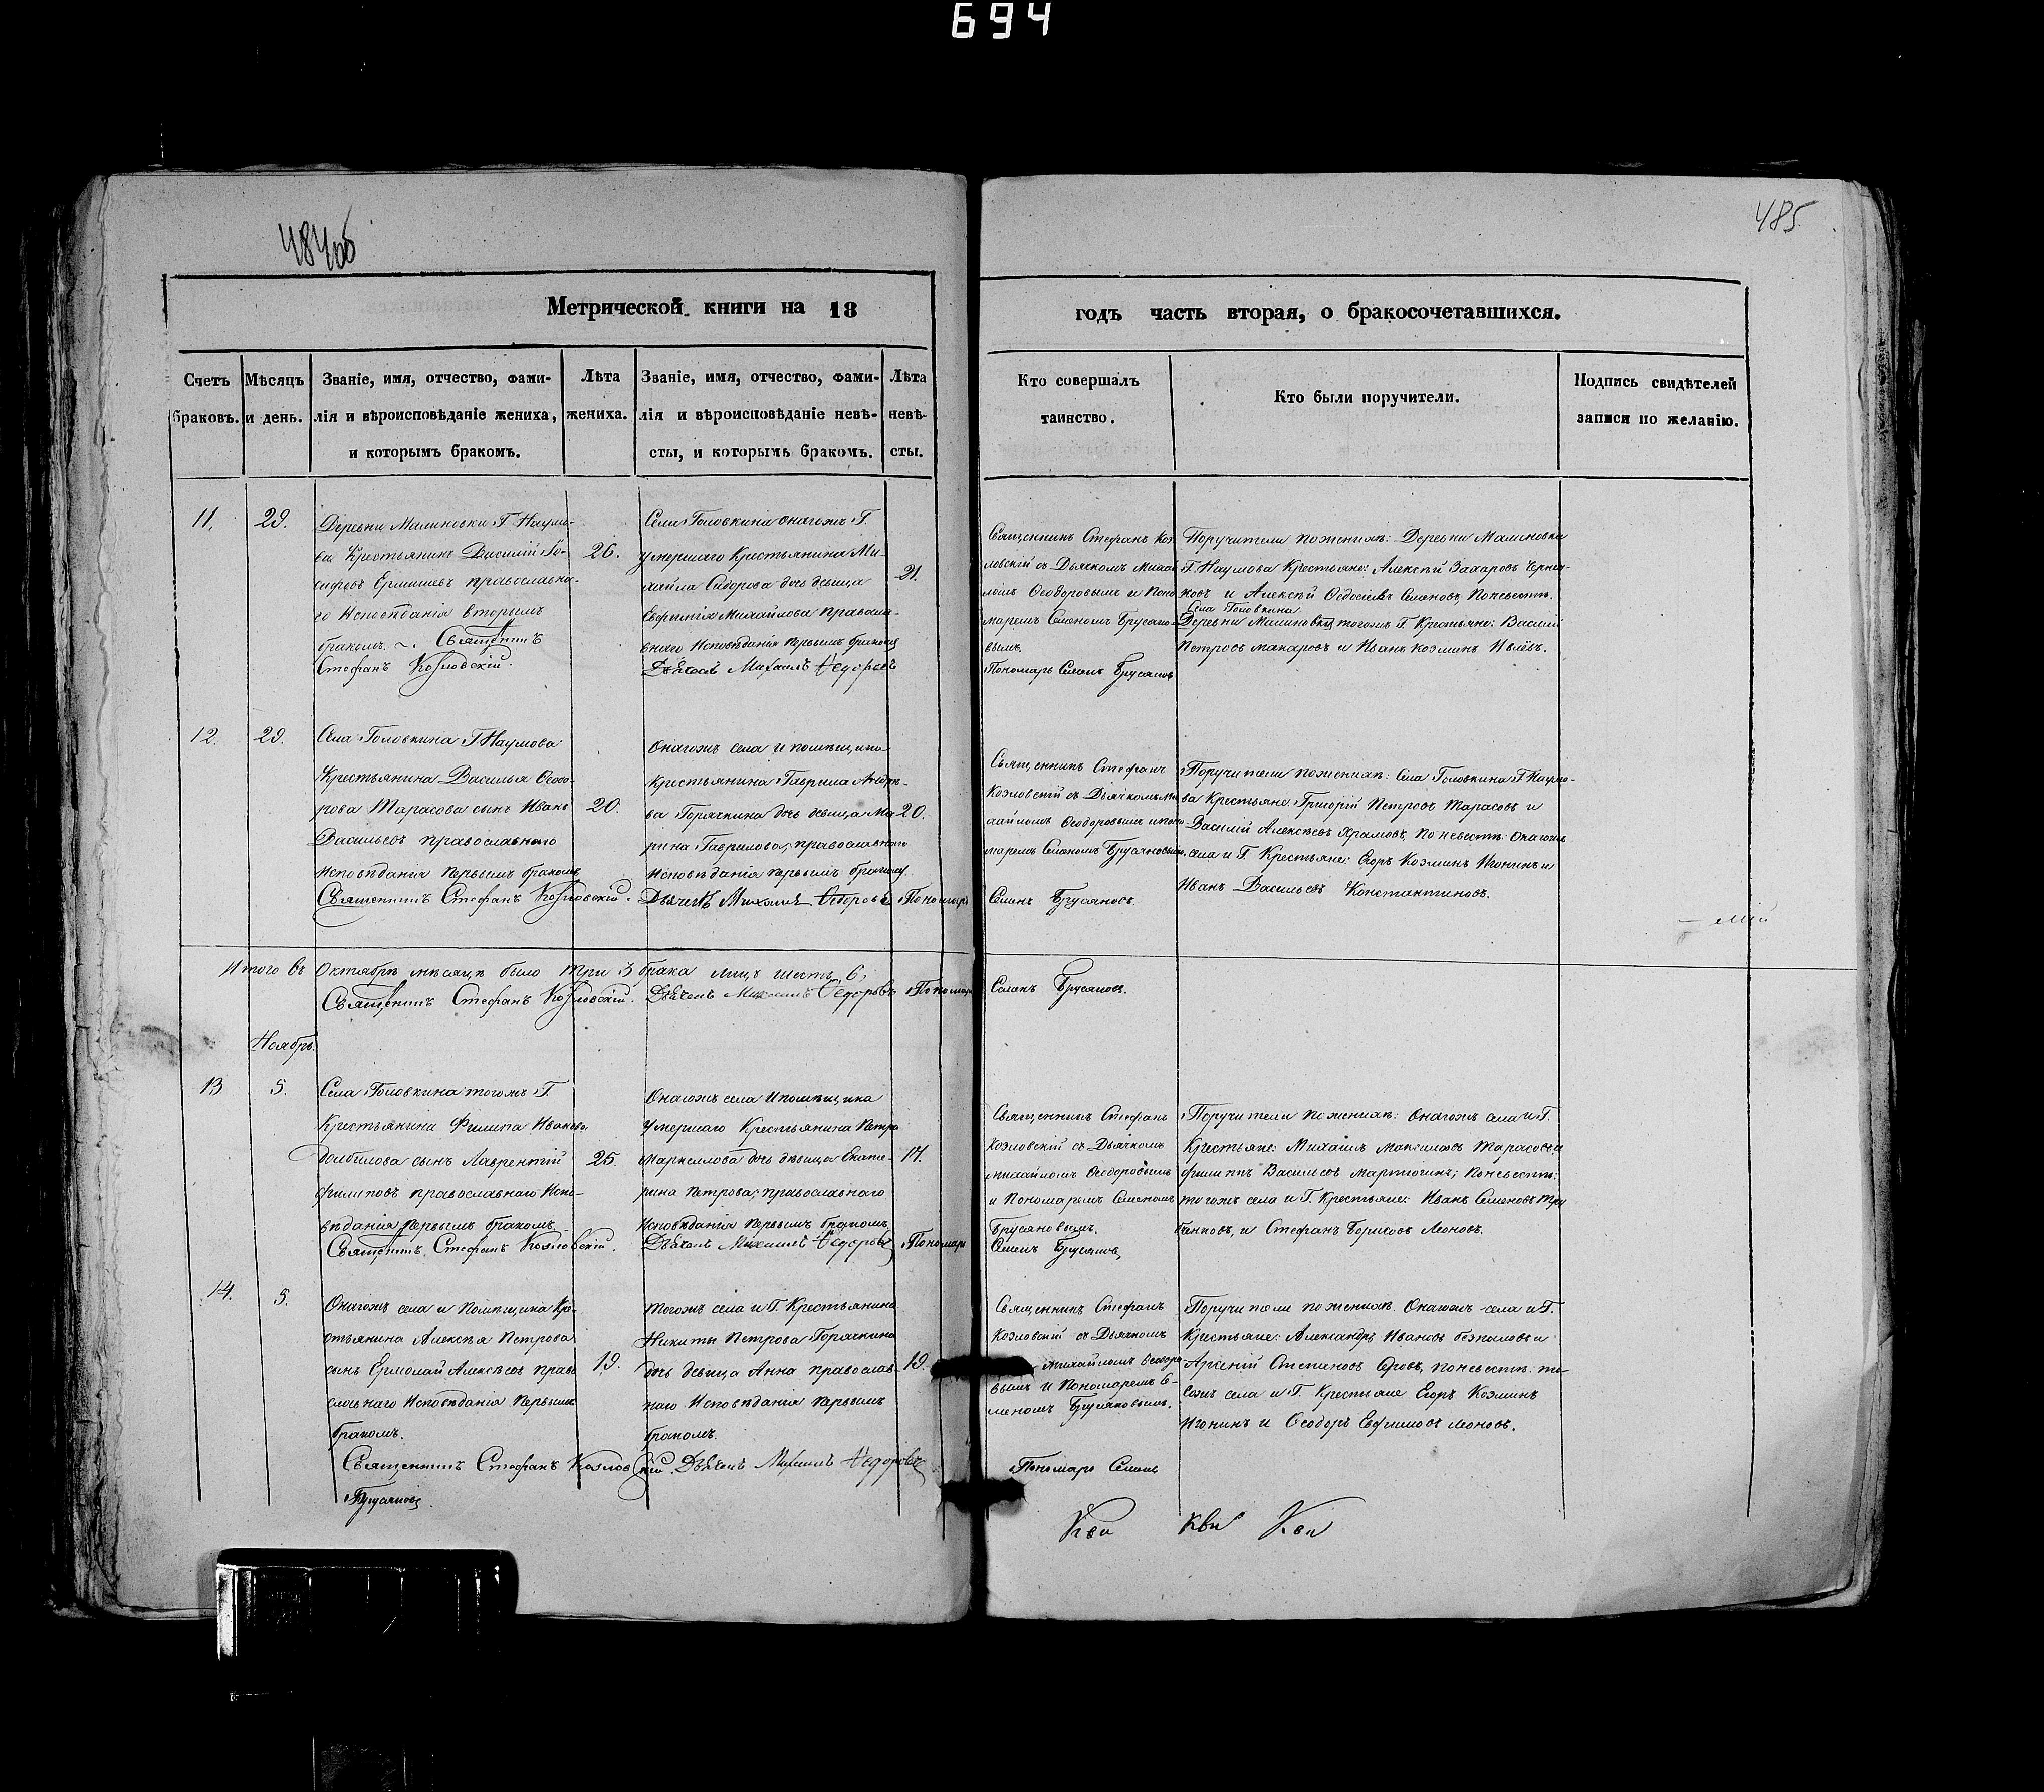 694
484об
485
Метрической книги на 18
годъ часть вторая, о бракосочетавшихся.
Счетъ браковъ.
Мѣсяцъ и день.
Званіе, имя, отчество, фами-
лія и вѣроисповѣданіе жениха,
и которымъ бракомъ.
Лѣта
жениха.
Званіе, имя, отчество, фами-
лія и вѣроисповѣданіе невѣ-
сты, и которымъ бракомъ.
Лѣта
невѣ-
сты.
Кто совершалъ
таинство.
Кто были поручители.
Подпись свидѣтелей
записи по желанію.
11.
29.
Деревни Малиновки Г. Наумо-
ва Крестьянинъ Василій Іо-
сифовъ Ермишевъ православна-
го Исповѣданія вторымъ
бракомъ. Священникъ
Стефанъ Козловскій.
26.
Села Головкина онагожъ Г.
умершаго Крестьянина Ми-
хайла Сидорова дочь девица
Евфимія Михайлова Правосла-
внаго Исповѣданія первымъ бракомъ
Дьячекъ Михаилъ Федоровъ
21.
Священникъ Стефанъ Коз
ловскій съ Дьячкомъ Михаи
ломъ Ѳеодоровымъ и Поно
маремъ Семеномъ Брусяно-
вымъ.
Пономарь Семенъ Брусяновъ
Поручители по женихѣ: Деревни Малиновки
Г. Наумова Крестьяне: Алексѣй Захаровъ
и Алексѣй Семеновъ, По невестѣ.
Села Головкина
Деревни Малиновки тогожъ Г. Крестьяне: Василій
Петровъ Макаровъ и Иванъ Козминъ Ивлёвъ.
12.
29.
Села Головкина Г Наумова
Крестьянина Василья Ѳеодо-
рова Тарасова сынъ Иванъ
Васильевъ православнаго
исповѣданія первымъ бракомъ
Священникъ Стефанъ Козловскій.
20.
Онагожъ села и помѣщика
крестьянина Гаврила Андре-
ва Горячкина дочь девица Ма-
рина Гаврилова, православнаго
исповѣданія первымъ бракомъ.
Дьячекъ Михаилъ Федоровъ Пономарь
20.
Священникъ Стефанъ
Козловскій съ Дьячкомъ Ми
хайломъ Ѳеодоровымъ и поно
маремъ Семеномъ Брусяновымъ.
Семенъ Брусяновъ
Поручители по женихѣ: Села Головкина Г Наумо-
ва Крестьяне: Григорій Петровъ Тарасовъ и
Василій Алексѣевъ Храмовъ, по невестѣ: Онагожъ
села и Г. Крестьяне: Егоръ Козминъ Игонинъ и
Иванъ Васильевъ Константиновъ.
Итого въ Октябрѣ мѣсяцѣ было три 3 брака лицъ шесть 6,
Священникъ Стефанъ Козловскій. Дьячекъ Михаилъ Федоровъ Пономарь
Семенъ Брусяновъ.
Ноябрь.
13
5.
Села Головкина тогожъ Г.
Крестьянина Филипа Иванова
Долбилова сынъ Лаврентій
Филиповъ православнаго Испо-
вѣданія первымъ бракомъ
Священникъ Стефанъ Козловскій.
25.
Онагожъ села и помѣщика
умершаго Крестьянина Петра
Маркелова дочь девица Екате-
рина Петрова, православнаго
Исповѣданія первымъ бракомъ
Дьячекъ Михаилъ Федоровъ Пономарь
17.
Священникъ Стефанъ
Козловскій съ Дьячкомъ
михайломъ Ѳеодоровымъ
и Пономаремъ Семеномъ
Брусяновымъ.
Семенъ Брусяновъ
Поручители по женихѣ: Онагожъ села и Г.
Крестьяне: Михаилъ Максимовъ Тарасовъ и
Филиппъ Васильевъ Мартюгинъ; По невестѣ:
тогожъ села и Г. Крестьяне: Иванъ Семеновъ
и Стефанъ Борисовъ Леоновъ.
14.
5.
Онагожъ села и Помѣщика Кре-
стьянина Алексѣя Петрова
сынъ Ермолай Алексѣевъ Право
славнаго Исповѣданія Первымъ
бракомъ.
Священникъ Стефанъ Козловскій. Дьячекъ Михаилъ Федоровъ
Брусяновъ.
19.
тогожъ села и Г. Крестьянина
Никиты Петрова Горячкина
дочь девица Анна православ-
наго Исповѣданія первымъ
бракомъ.
19.
Священникъ Стефанъ
Козловскій съ Дьячкомъ
Михайломъ Ѳеодоро
вымъ и Пономаремъ Се-
меномъ Брусяновымъ.
Пономарь Семенъ
Поручители по женихѣ. Онагожъ села и Г.
Крестьяне: Александръ Ивановъ Безпаловъ и
Арсеній Степановъ по невестѣ: то-
гожъ села и Г. Крестьяне Егоръ Козминъ
Игонинъ и Ѳеодоръ Евфимовъ Леоновъ.